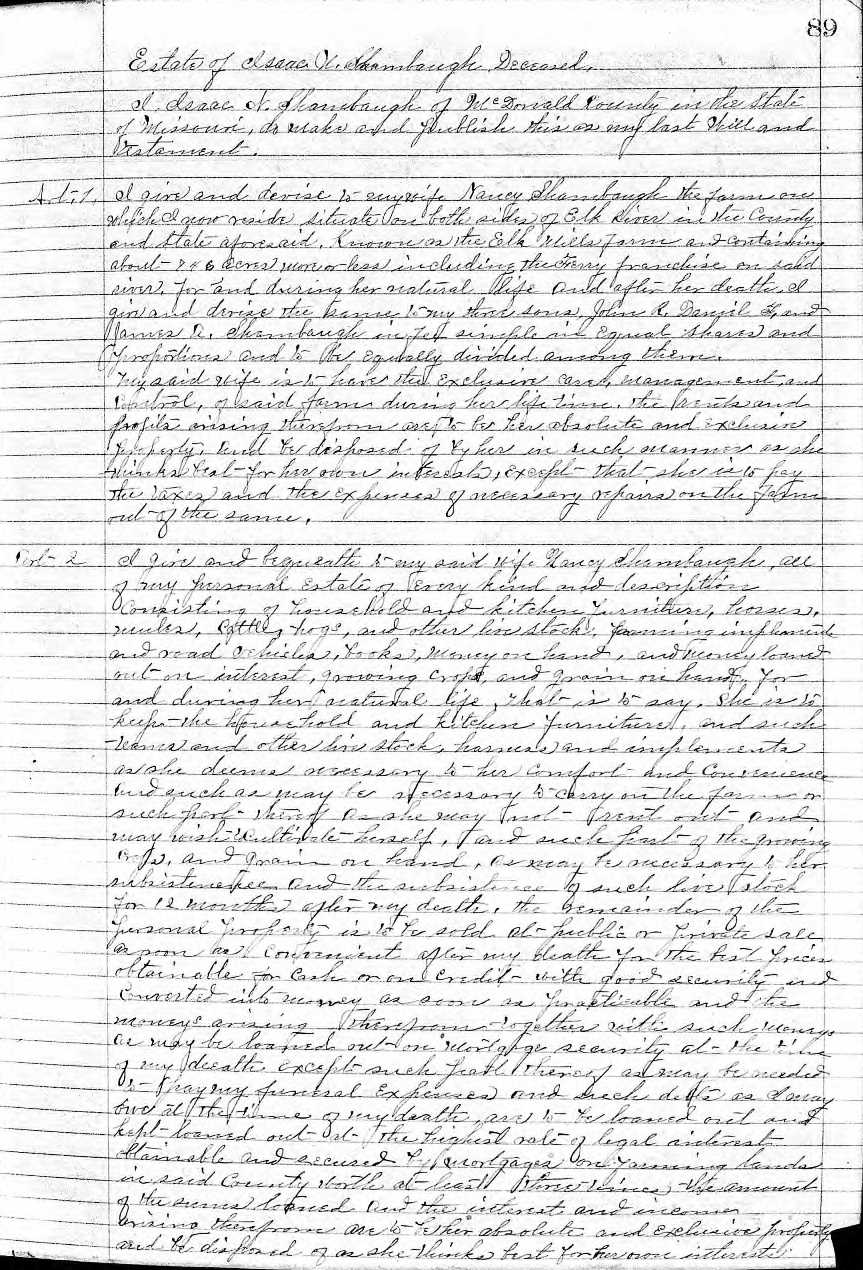 89
Estate of Isaac N. Shambaugh Deceased.
I, Isaac N. Shambaugh of McDonald County in the State
of Missouri, do make and publish this as my last Will and
testament.
Art. 1. I give and devise to my wife Nancy Shambaugh the farm on
which I now reside situate on both sides of Elk River in the County
and State aforesaid. Known as the Elk Mills farm and containing
about acres more or less including the Ferry franchise on said
river, for and during her natural life and after her death, I
give and devise the same to my three sons, John R. Daniel F. and
James A. Shambaugh in fee simple in equal shares and
proportions and to be equally divided among them.
My said wife is to have the exclusive care, management, and
control, of said farm during her life time, the rents and
profits arising therefrom are to be her absolute and exclusive
property, and be disposed of by her in such manner as she
thinks best for her own interests, except that she is to pay
the taxes and the expenses of necessary repairs on the farm
out of the same.
Art. 2 I give and bequeath to my said wife Nancy Shambaugh, all
of my personal estate of every kind and description
Consisting of household and kitchen furniture, horses,
mules, Cattle, hogs, and other live stock, farming implements
and road vehicles, books, money on hand, and money loaned
out on interest, growing crops, and grain on hand, for
and during her natural life, that is to say, She is to
keep the household and kitchen furniture, and such
teams and other live stock, harness and implements
as she deems necessary to her comfort and convenience
and such as may be necessary to carry on the farm or
such part thereof as she may not rent out and
may wish to cultivate herself, and such part of the growing
crops, and grain on hand, as may be necessary to her
subsistence and the subsistence of such live stock
for 12 months after my death, the remainder of the
personal property is to be sold at public or private sale
as soon as convenient after my death for the best prices
obtainable for cash or on credit with good security and
Converted into money as soon as practicable and the
moneys arising therefrom together with such moneys
as may be loaned out on mortgage security at the time
of my death except such part thereof as may be needed
to pay my funeral expenses and such debts as I may
owe at the time of my death, are to be loaned out and
kept loaned out at the highest rate of legal interest
obtainable and secured by mortgages on farming lands
in said County worth at least three times the amount
of the sums loaned and the interest and income
arising therefrom are to be her absolute and exclusive property
and be disposed of as she thinks best for her own interests